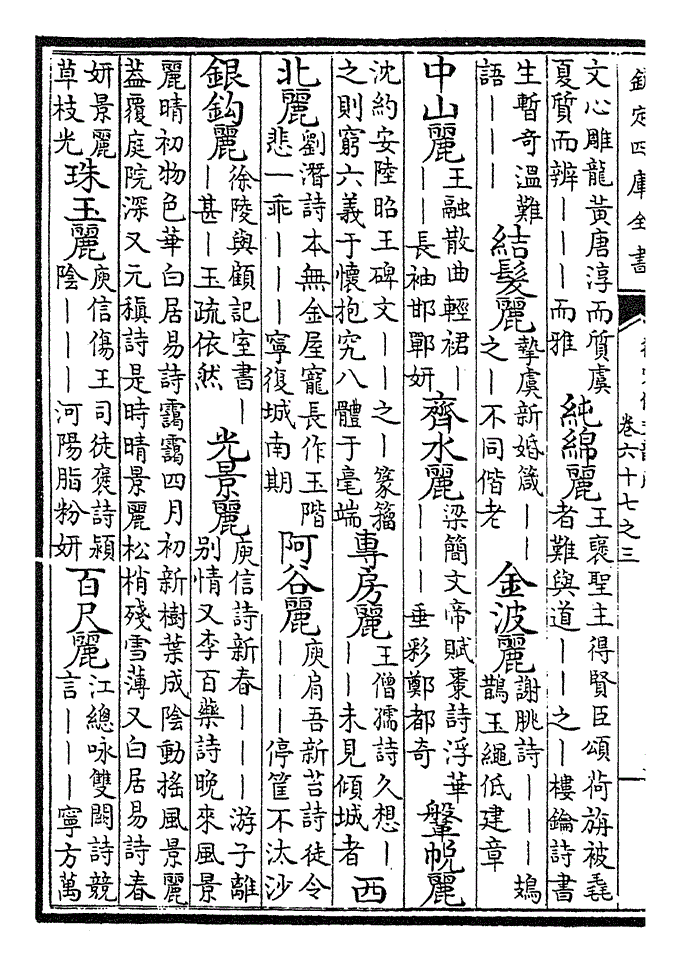 欽定四庫全書
卷六十七之三
文心雕龍黃唐淳而質虞
夏質而辨｜｜｜而雅
純綿麗
王褒聖主得賢臣頌荷旃被毳
者難與道｜｜之｜樓鑰詩書
生暫奇溫難
語｜｜｜
結髮麗
摯虞新婚箴｜｜
之｜不同偕老
金波麗
謝朓詩｜｜｜鳷
鵲玉繩低建章
中山麗
王融散曲輕裙｜
｜｜長袖邯鄲妍
齊水麗
梁簡文帝賦棗詩浮華
｜｜｜垂彩鄭都奇
鞶帨麗
沈約安陸昭王碑文｜｜之｜篆籀
之則窮六義于懷抱究八體于毫端
專房麗
王僧孺詩久想｜
｜｜未見傾城者
西
北麗
劉潛詩本無金屋寵長作玉階
悲一乖｜｜｜寧復城南期
阿谷麗
庾肩吾新苔詩徒令
｜｜｜停筐不汰沙
銀鈎麗
徐陵與顧記室書｜
｜甚｜玉疏依然
光景麗
庾信詩新春｜｜｜游子離
別情又李百藥詩晚來風景
麗晴初物色華白居易詩靄靄四月初新樹葉成陰動搖風景麗
蓋覆庭院深又元稹詩是時晴景麗松梢殘雪薄又白居易詩春
妍景麗
草枝光
珠玉麗
庾信傷王司徒褒詩潁
陰｜｜｜河陽脂粉妍
百尺麗
江總咏雙闕詩競
言｜｜｜寧方萬